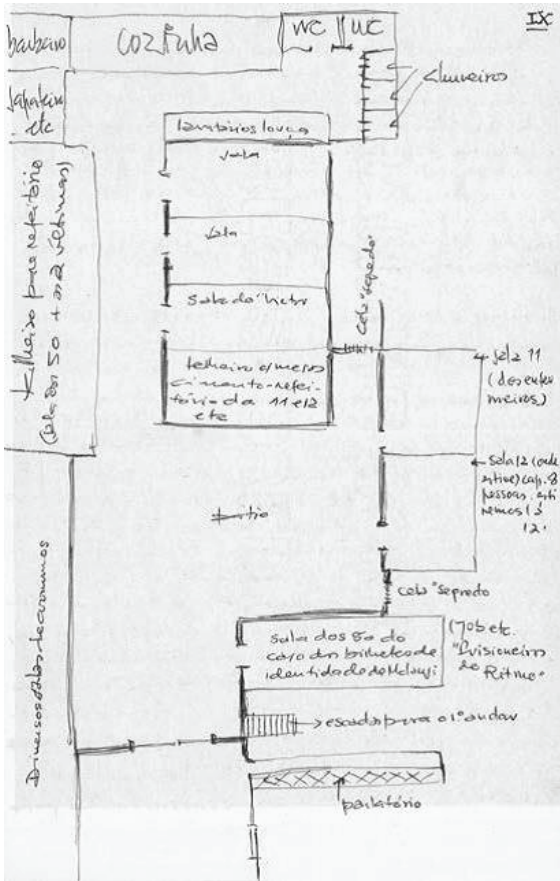 IX
barbeiro
cozinha
WC
WC
sapateiro
etc
chuveiros
lavatórios louça
sala
sala
sala do
telheiro c/ mesas
cimento-refei-
tório da 11 e 12
etc
Telheiro para refeitório
(sala dos 50 + as 2 últimas)
cela "segredo"
sala 11
(dos enfer
meiros)
sala 12 (onde
estive) cap. 8
pessoas. esti
vemos 13
12.
Pátio
cela "segredo"
sala dos 80 do
caso dos bilhetes de
identidade do
(Job etc.
"Prisioneiros
do Ritmo"
escada para o 1º andar
parlatório